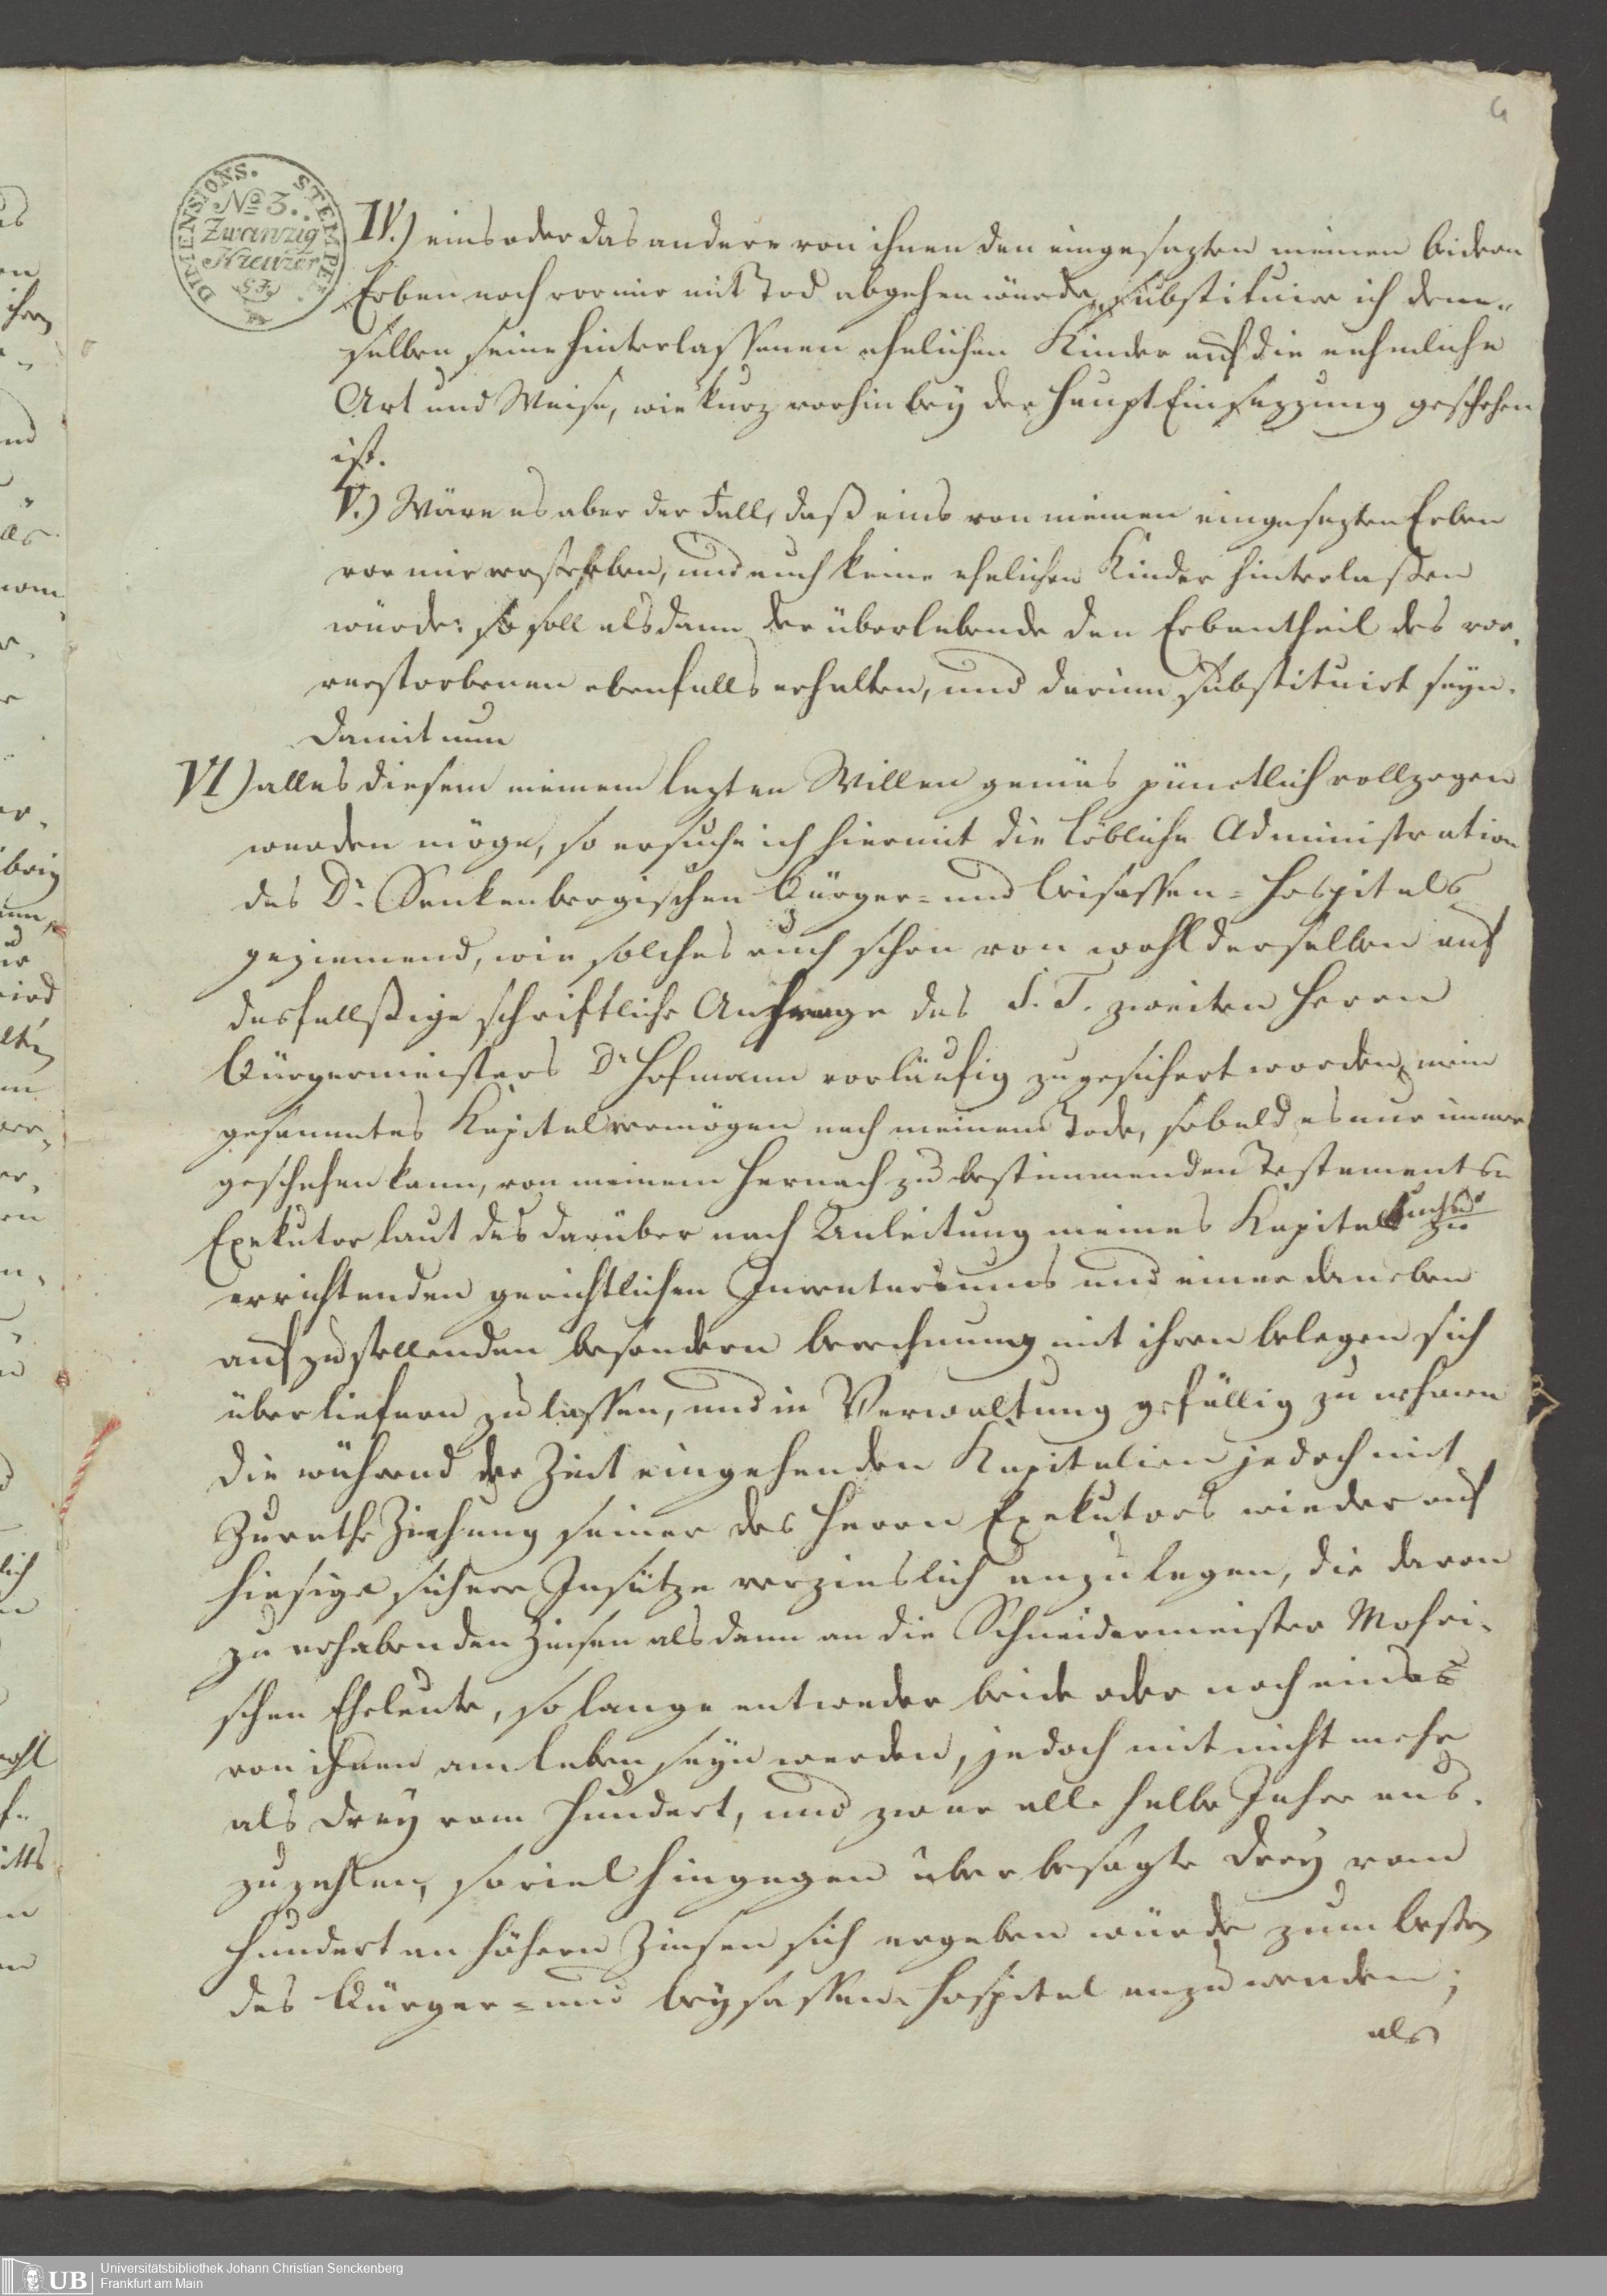 6
DIMENSIONS. STEMPEL.
No 3.
Zwanzig
Kreuzer
IV.) eins oder das andere von ihnen den eingesezten meinen beiden
Erben noch vor mir mit Tod abgehen würde, substituire ich dem-
selben seine hinterlassenen ehelichen Kinder auf die nehmliche
Art und Weise, wie kurz vorhin bey der Haupt Einsezzung geschehen
ist.
V.) Wäre es aber der Fall, daß eins von meinen eingesezten Erben
vor mir versterben, und auch keine ehelichen Kinder hinterlaßen
würde: so soll alsdann der überlebende den Erbantheil des vor-
verstorbenen ebenfalls erhalten, und darinn substituirt seyn.
Damit nun
VI) alles diesem meinem lezten Willen gemäs pünctlich vollzogen
werden möge, so ersuche ich hiermit die Löbliche Administration
des Dr. Senkenbergischen Bürger- und Beisassen-Hospitals
geziemend, wie solches auch schon von wohlderselben auf
desfallsige schriftliche Anfrage des S. T. zweiten Herrn
Bürgermeisters Dr Hofmann vorläufig zugesichert worden, mein
gesammtes Kapitalvermögen nach meinem Tode, sobald es nur immer
geschehen kann, von meinem hernach zu bestimmenden Testaments-
Exekutor laut des darüber nach Anleitung meines Kapitalbuchs zu
errichtenden gerichtlichen Inventariums und einer daneben
aufzustellenden besondern Berechnung mit ihren Belegen sich
überliefern zu lassen, und in Verwaltung gefällig zu nehmen
die während der Zeit eingehenden Kapitalien jedoch mit
Zurathe Ziehung seiner des Herrn Exekutors wieder auf
hiesige sichere Insätze verzinslich anzulegen, die davon
zu erhabenden Zinsen alsdann an die Schneidermeister Mohri-
schen Eheleute, so lange entweder beide oder noch eines
von ihnen am Leben seyn werden, jedoch mit nicht mehr
als drey vom Hundert, und zwar alle halbe Jahre aus-
zuzahlen, soviel hingegen über besagte drey vom
Hundert an höhern Zinsen sich ergeben würde zum Besten
des Bürger- und Beysassen-Hospital anzuwenden;
als
UB
Universitätsbibliothek Johann Christian Senckenberg
Frankfurt am Main